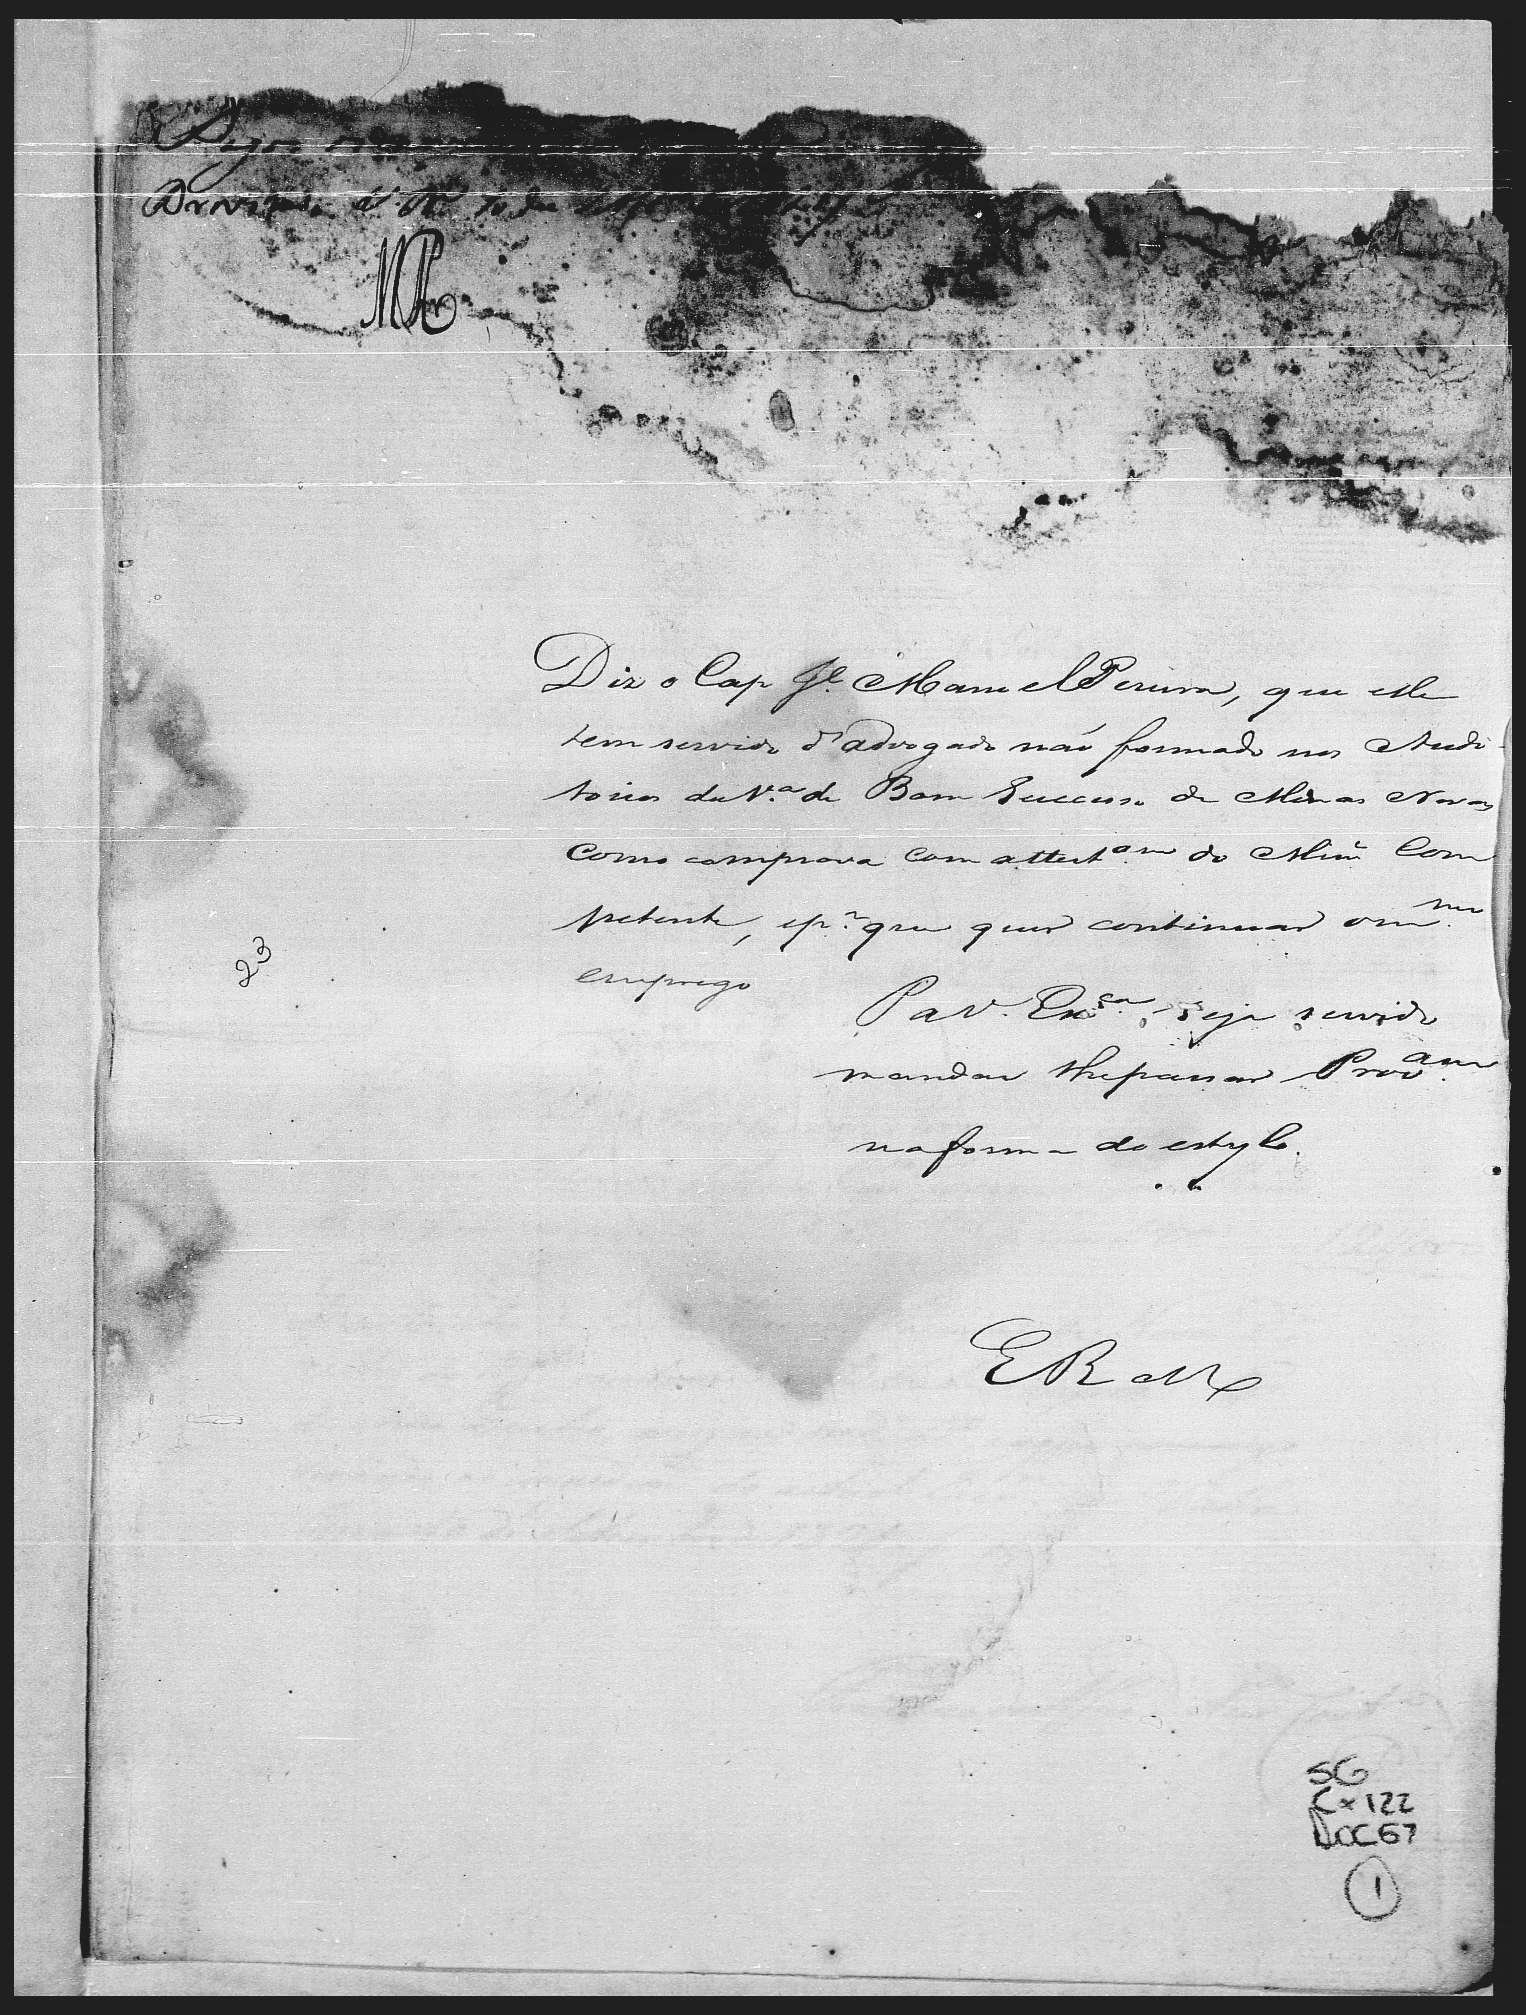 Diz o Cap Je. Manuel Pereira, que elle
tem servido d'advogado não formado nos Audi-
torios da V.a de Bom Successo de Minas Novas
como comprova com attest.am do Min Com
petente, e p.r que quer continuar o m.mo
emprego
P a V. Ex.ca seja servido
mandar lhe passar Prov.am
na forma do estylo.
E R M
23
SG
Cx 122
DOC 67
1